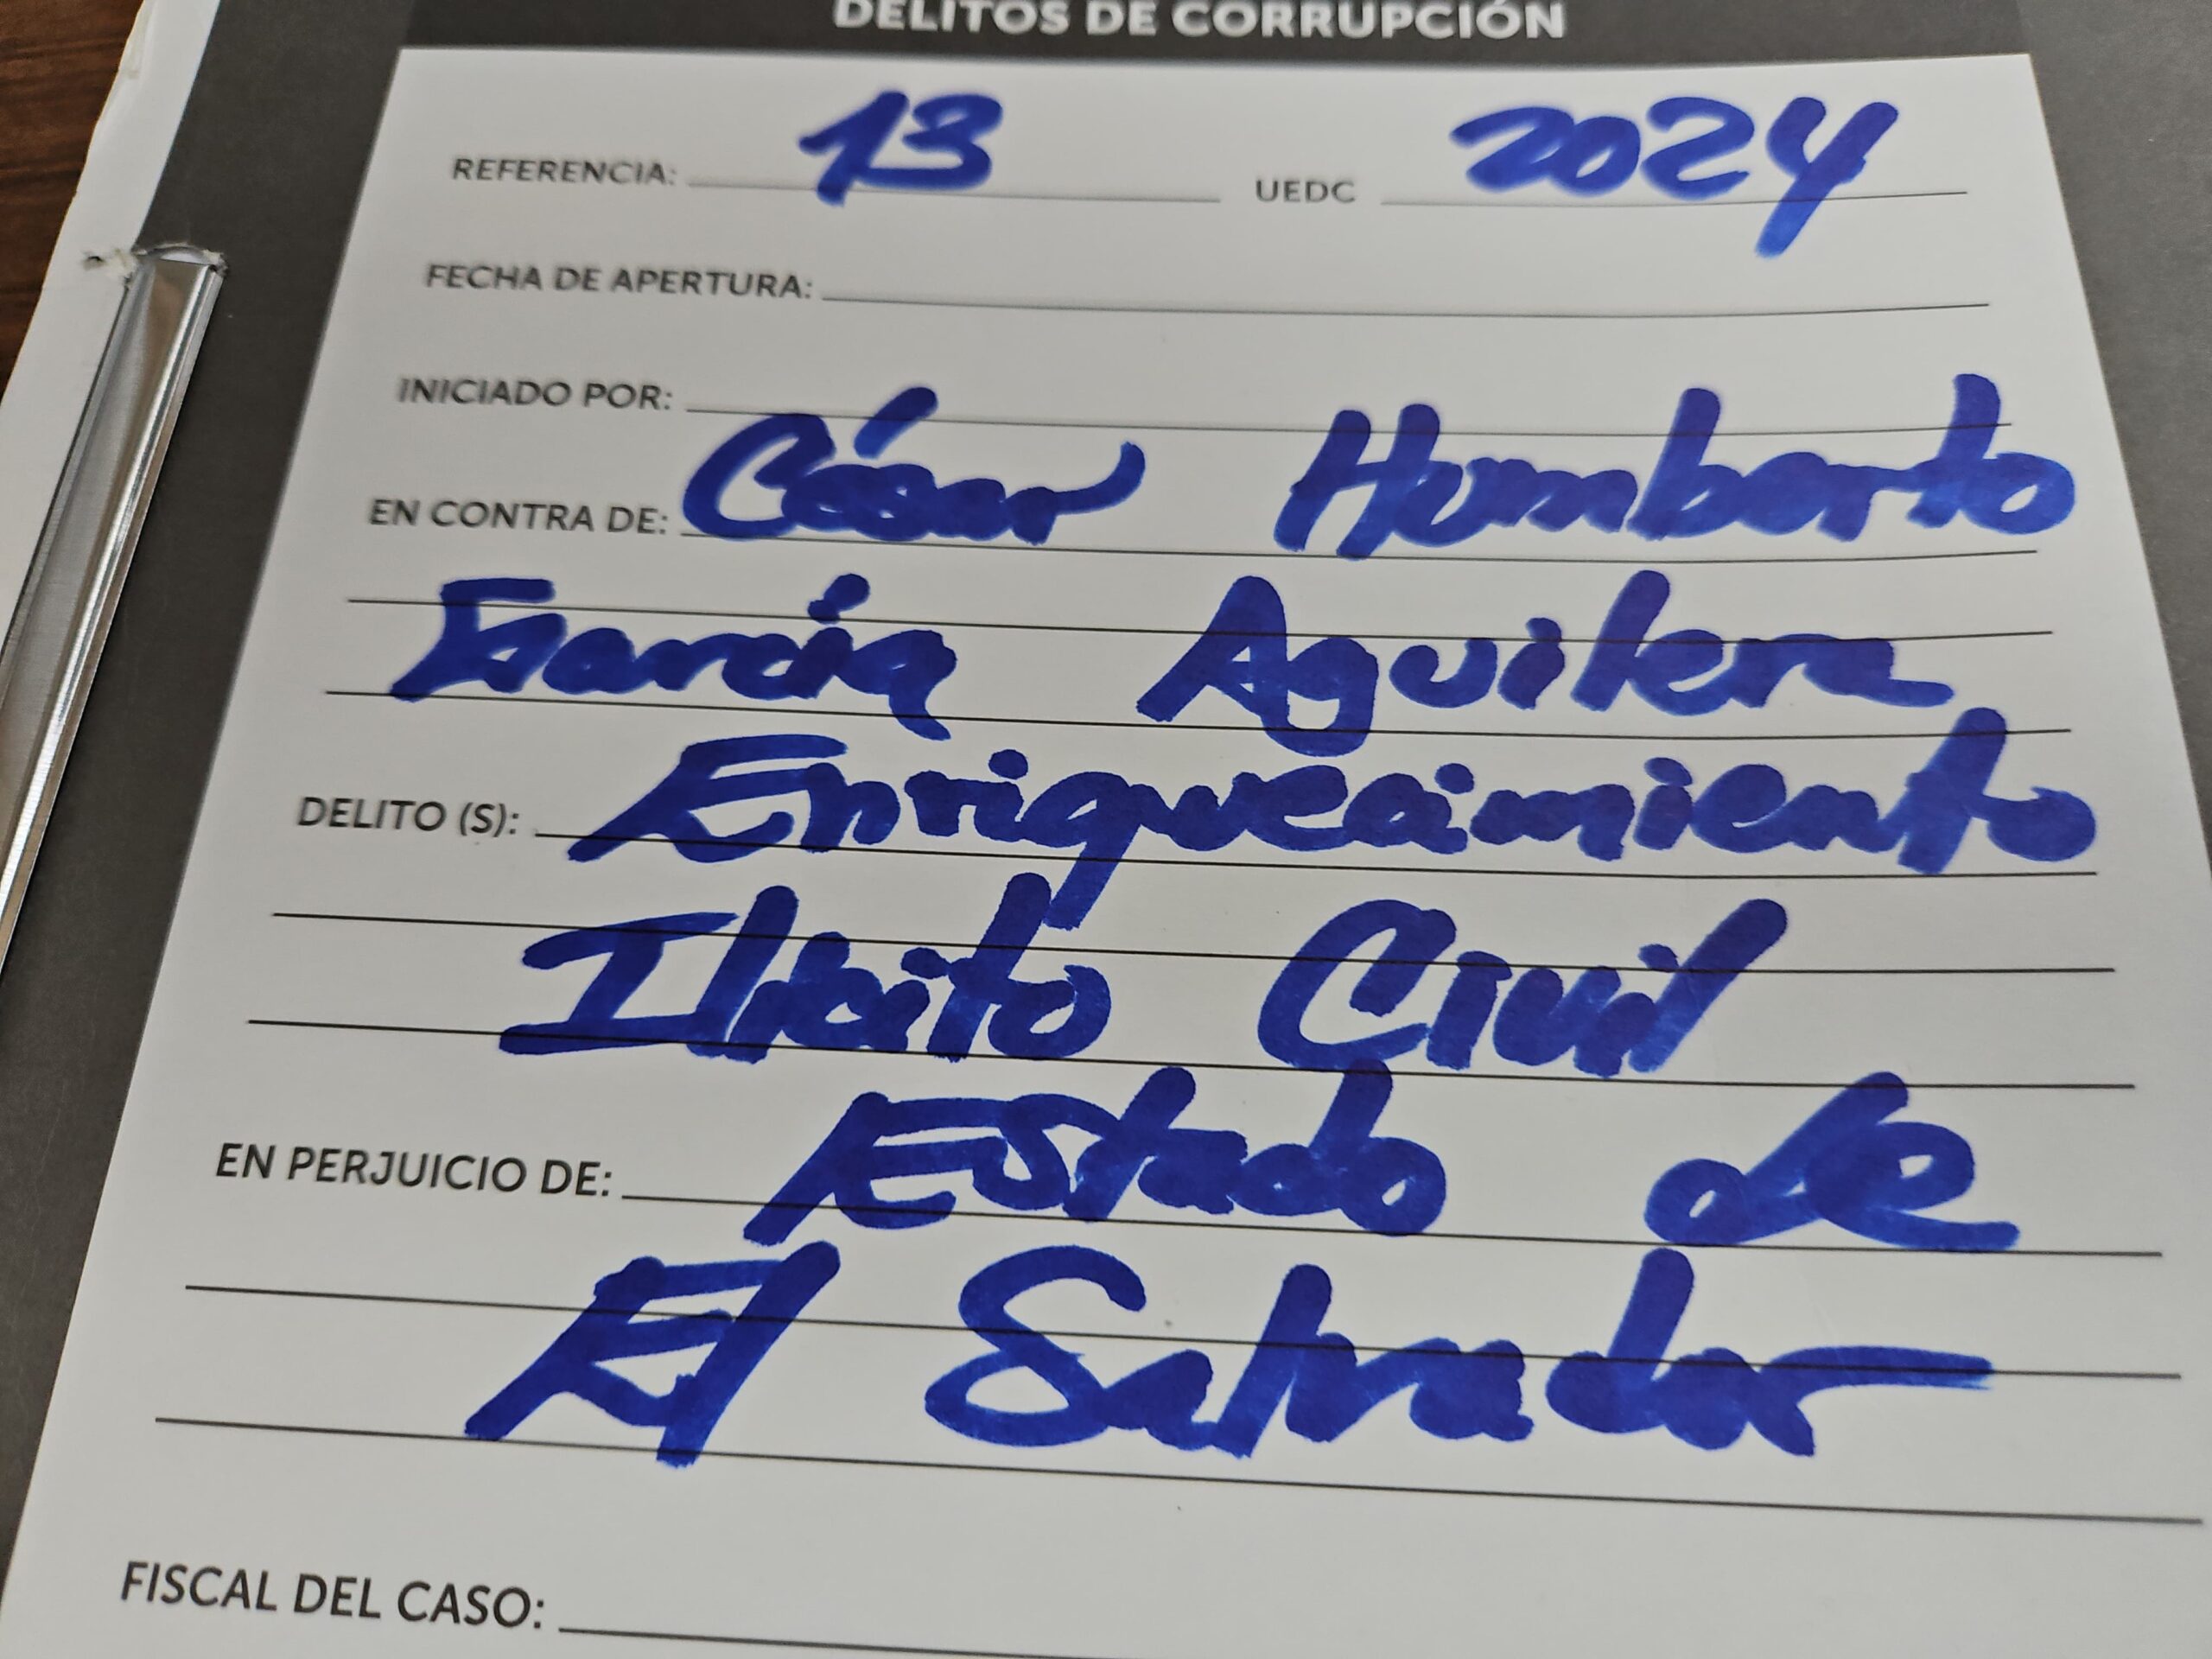 DELITOS DE CORRUPCIÓN
REFERENCIA: 13 UEDC 2024
FECHA DE APERTURA:
INICIADO POR:
EN CONTRA DE: César Humberto
García Aguilera
DELITO (S): Enriquecimiento
Ilícito Civil
EN PERJUICIO DE: Estado de
El Salvador
FISCAL DEL CASO: